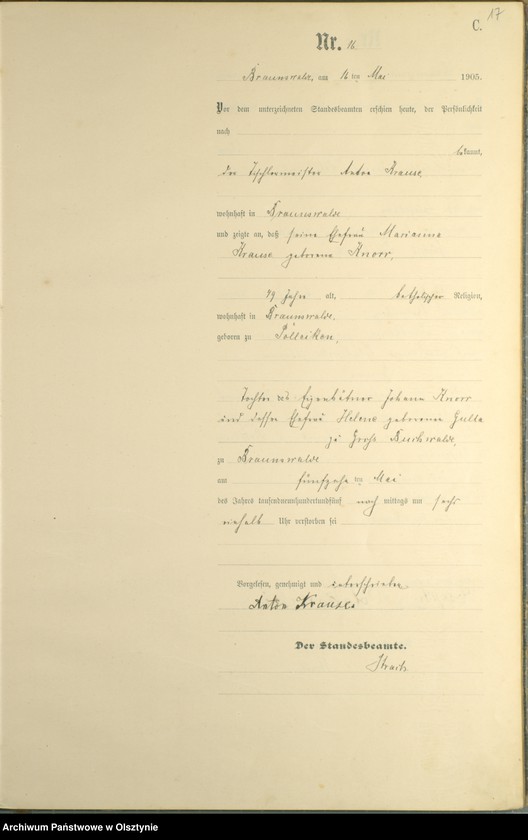 17
C.
Nr. 16
Braunswalde, am 16 ten Mai 1905.
Vor dem unterzeichneten Standesbeamten erschien heute, der Persönlichkeit
nach
bekannt,
der Tischlermeister Anton Krause
wohnhaft in Braunswalde
und zeigte an, daß seine Ehefrau Marianna
Krause geborene Knorr,
49 Jahre alt, katholischer Religion,
wohnhaft in Braunswalde,
geboren zu
Tochter des Eigenkätner Johann Knorr
und dessen Ehefrau Helene geborenen
zu Groß Buchwalde,
zu Braunswalde
am fünfzehn ten Mai
des Jahres tausendneunhundertundfünf nach mittags um sechs
einhalb Uhr verstorben sei
Vorgelesen, genehmigt und unterschrieben
Anton Krause
Der Standesbeamte.
Archiwum Państwowe w Olsztynie